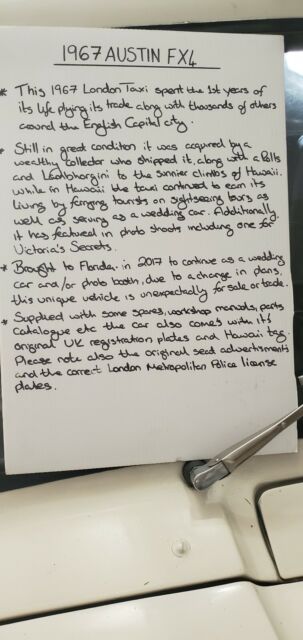 1967 AUSTIN FX4
* This 1967 London Taxi spent the 1st years of
its life plying its trade along with thousands of others
around the English Capital city.
* Still in great condition it was acquired by a
wealthy collector who shipped it, along with a Rolls
and Lamborghini to the sunnier climbs of Hawaii.
While in Hawaii the taxi continued to earn its
living by ferrying tourists on sightseeing tours as
well as serving as a wedding car. Additionally,
it has featured in photo shoots including one for
Victoria's Secrets.
* Brought to Florida, in 2017 to continue as a wedding
car and/or photo booth, due to a change in plans,
this unique vehicle is unexpectedly for sale or trade.
* Supplied with some spares, workshop manuals, parts
catalogue etc the car also comes with it's
original UK registration plates and Hawaii tag.
Please note also the original seat advertisments
and the correct London Metropolitan Police license
plates.